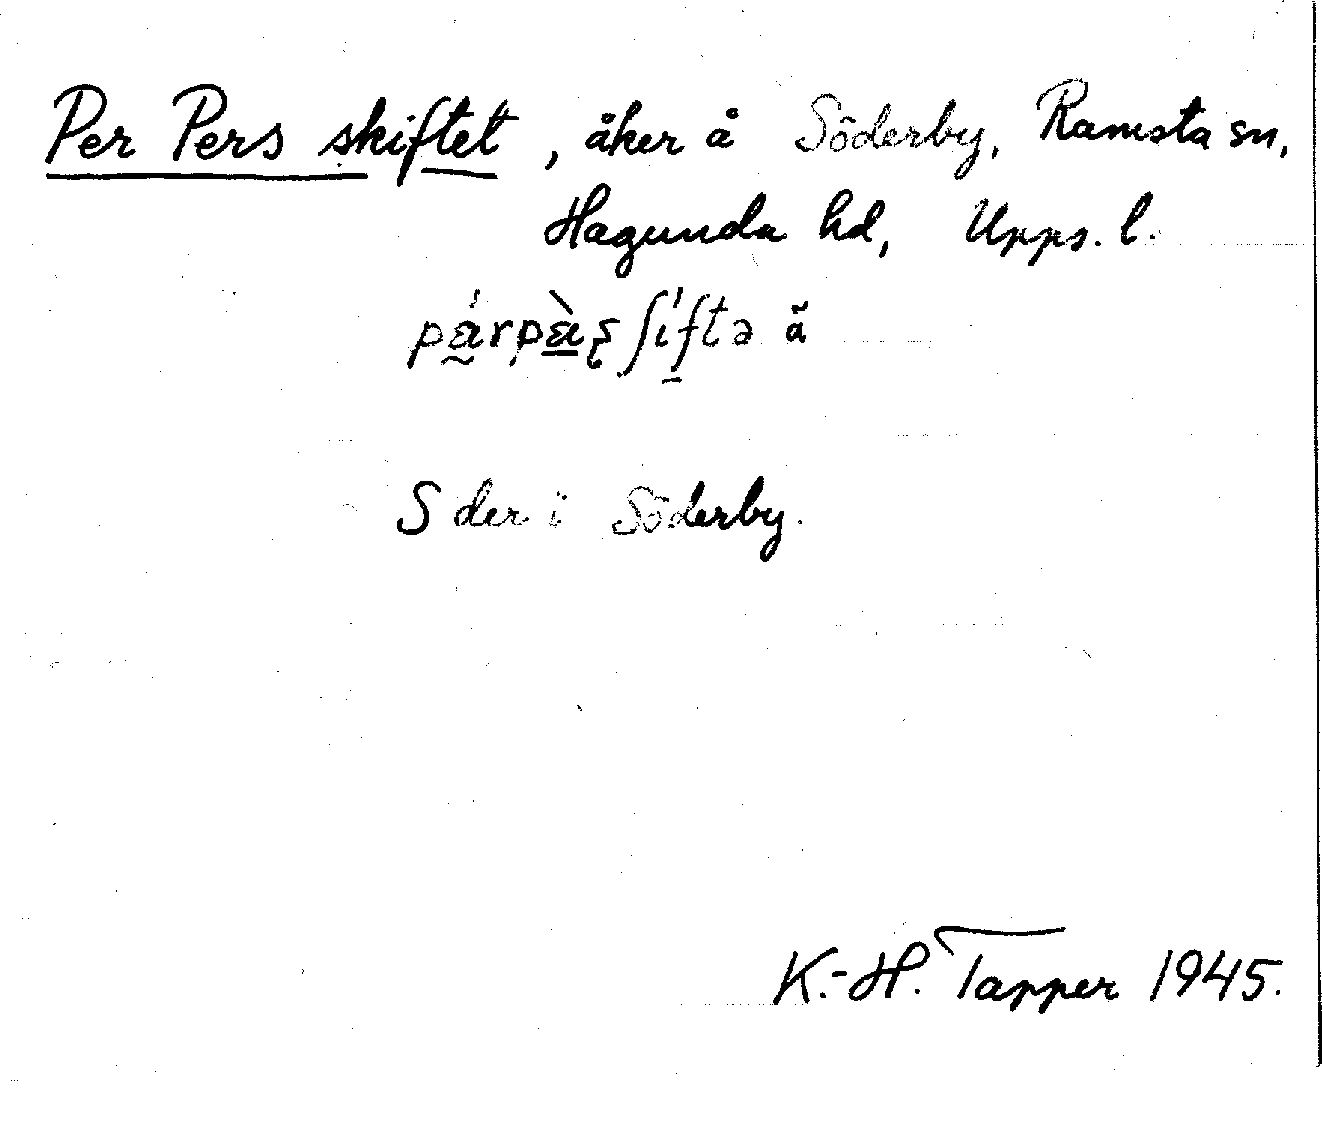 Per Pers skiftet, åker å Söderby, Ramsta sn,
Hagunda hd, Upps. l.
pǽ̰rpæ̱̀ʂʃı̱́ftə ă
S der i Söderby.
K.-H. Tapper 1945.